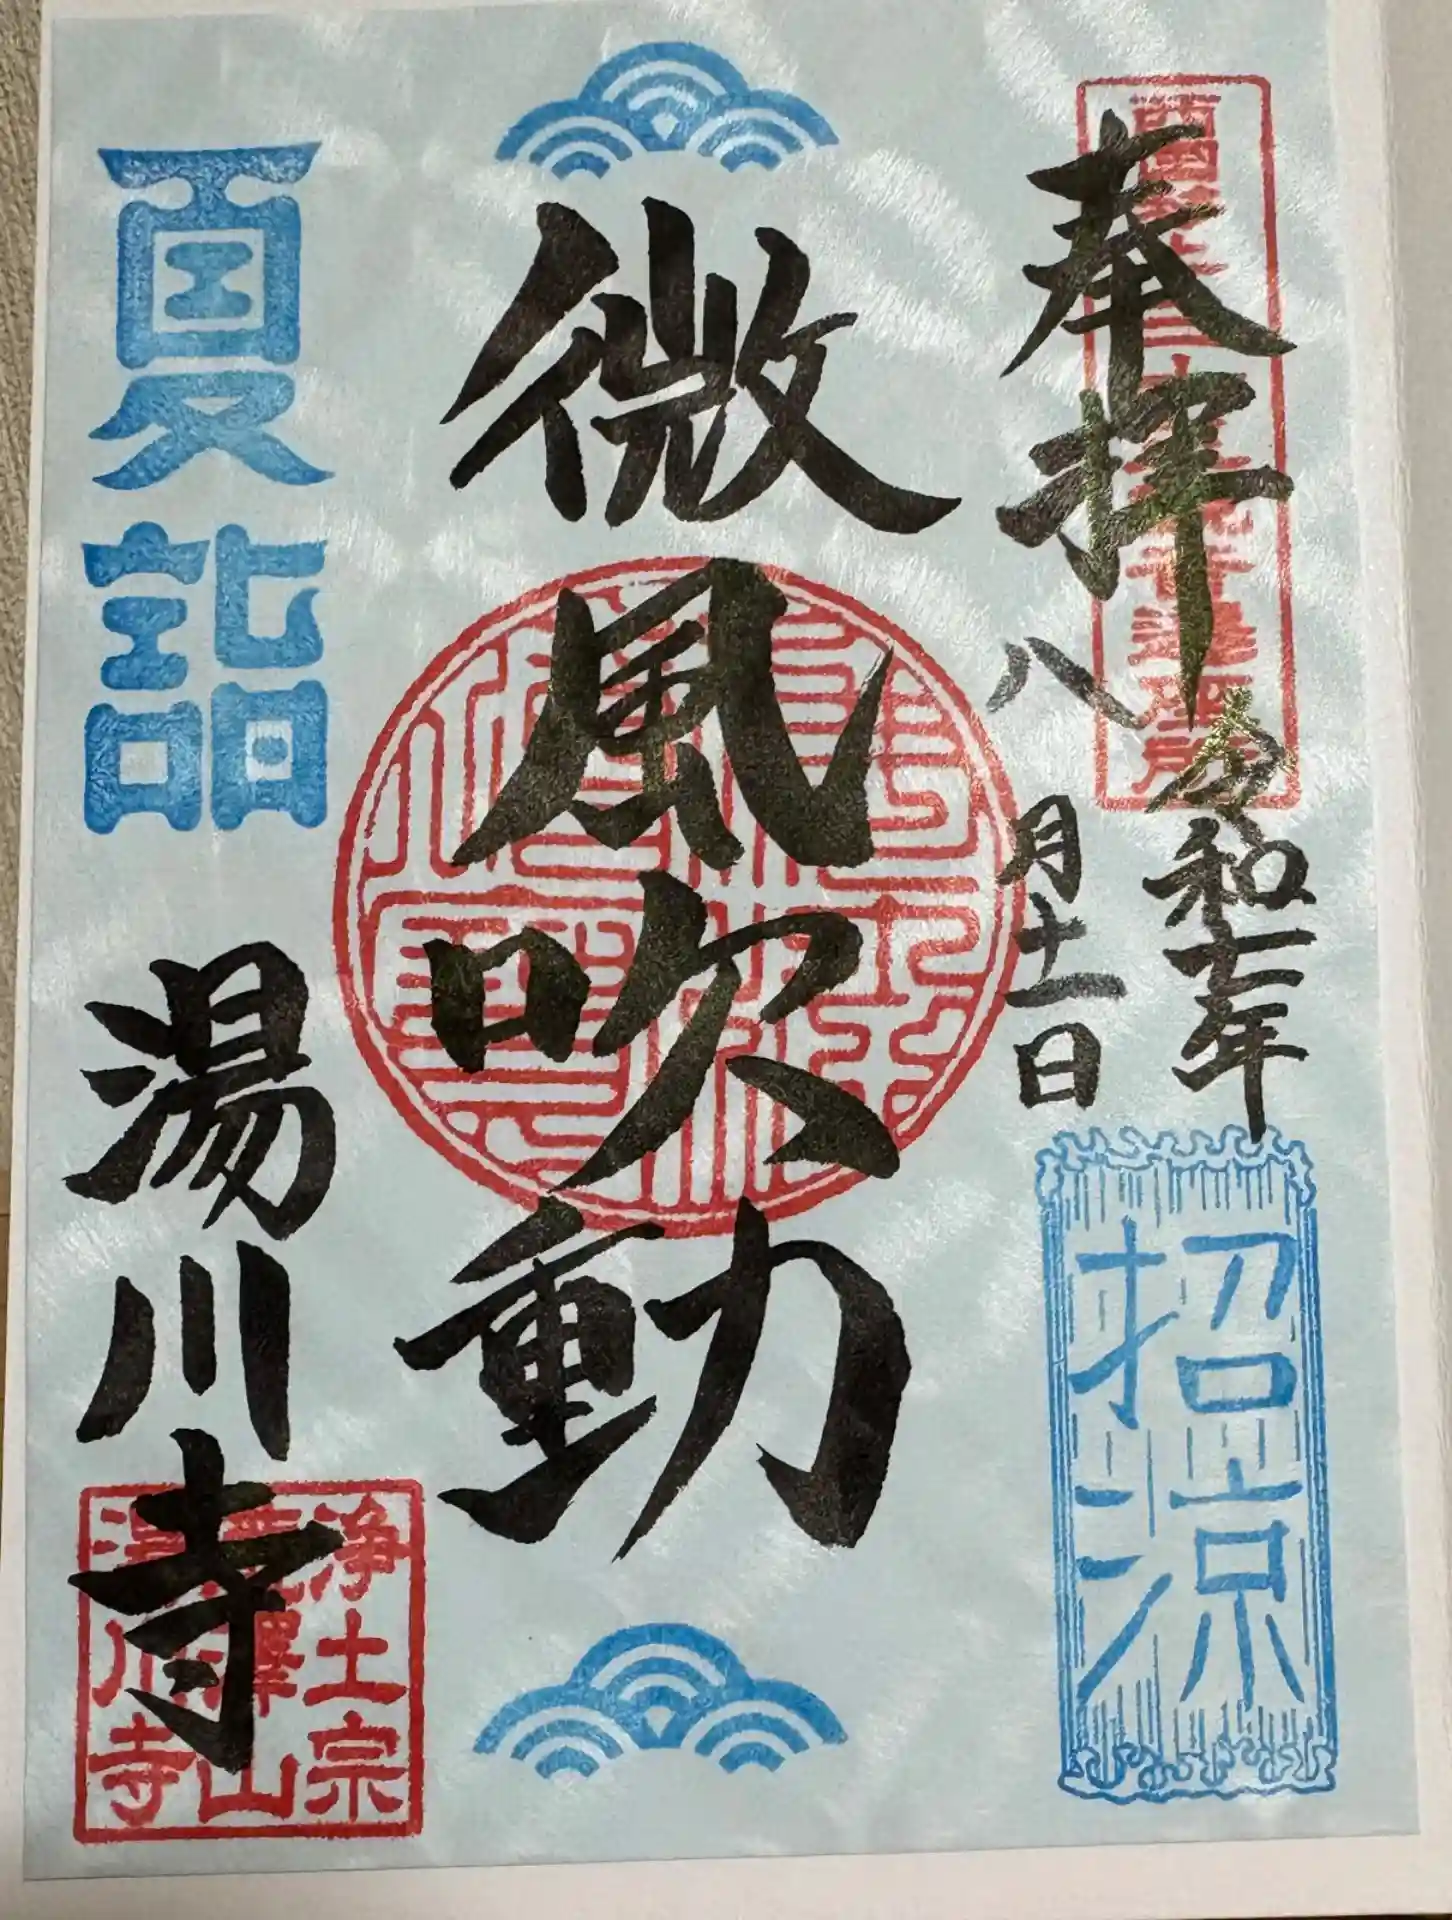 奉拝
令和七年
八月十一日
招涼
微風吹動
夏詣
湯川寺
浄土宗
山
湯川寺